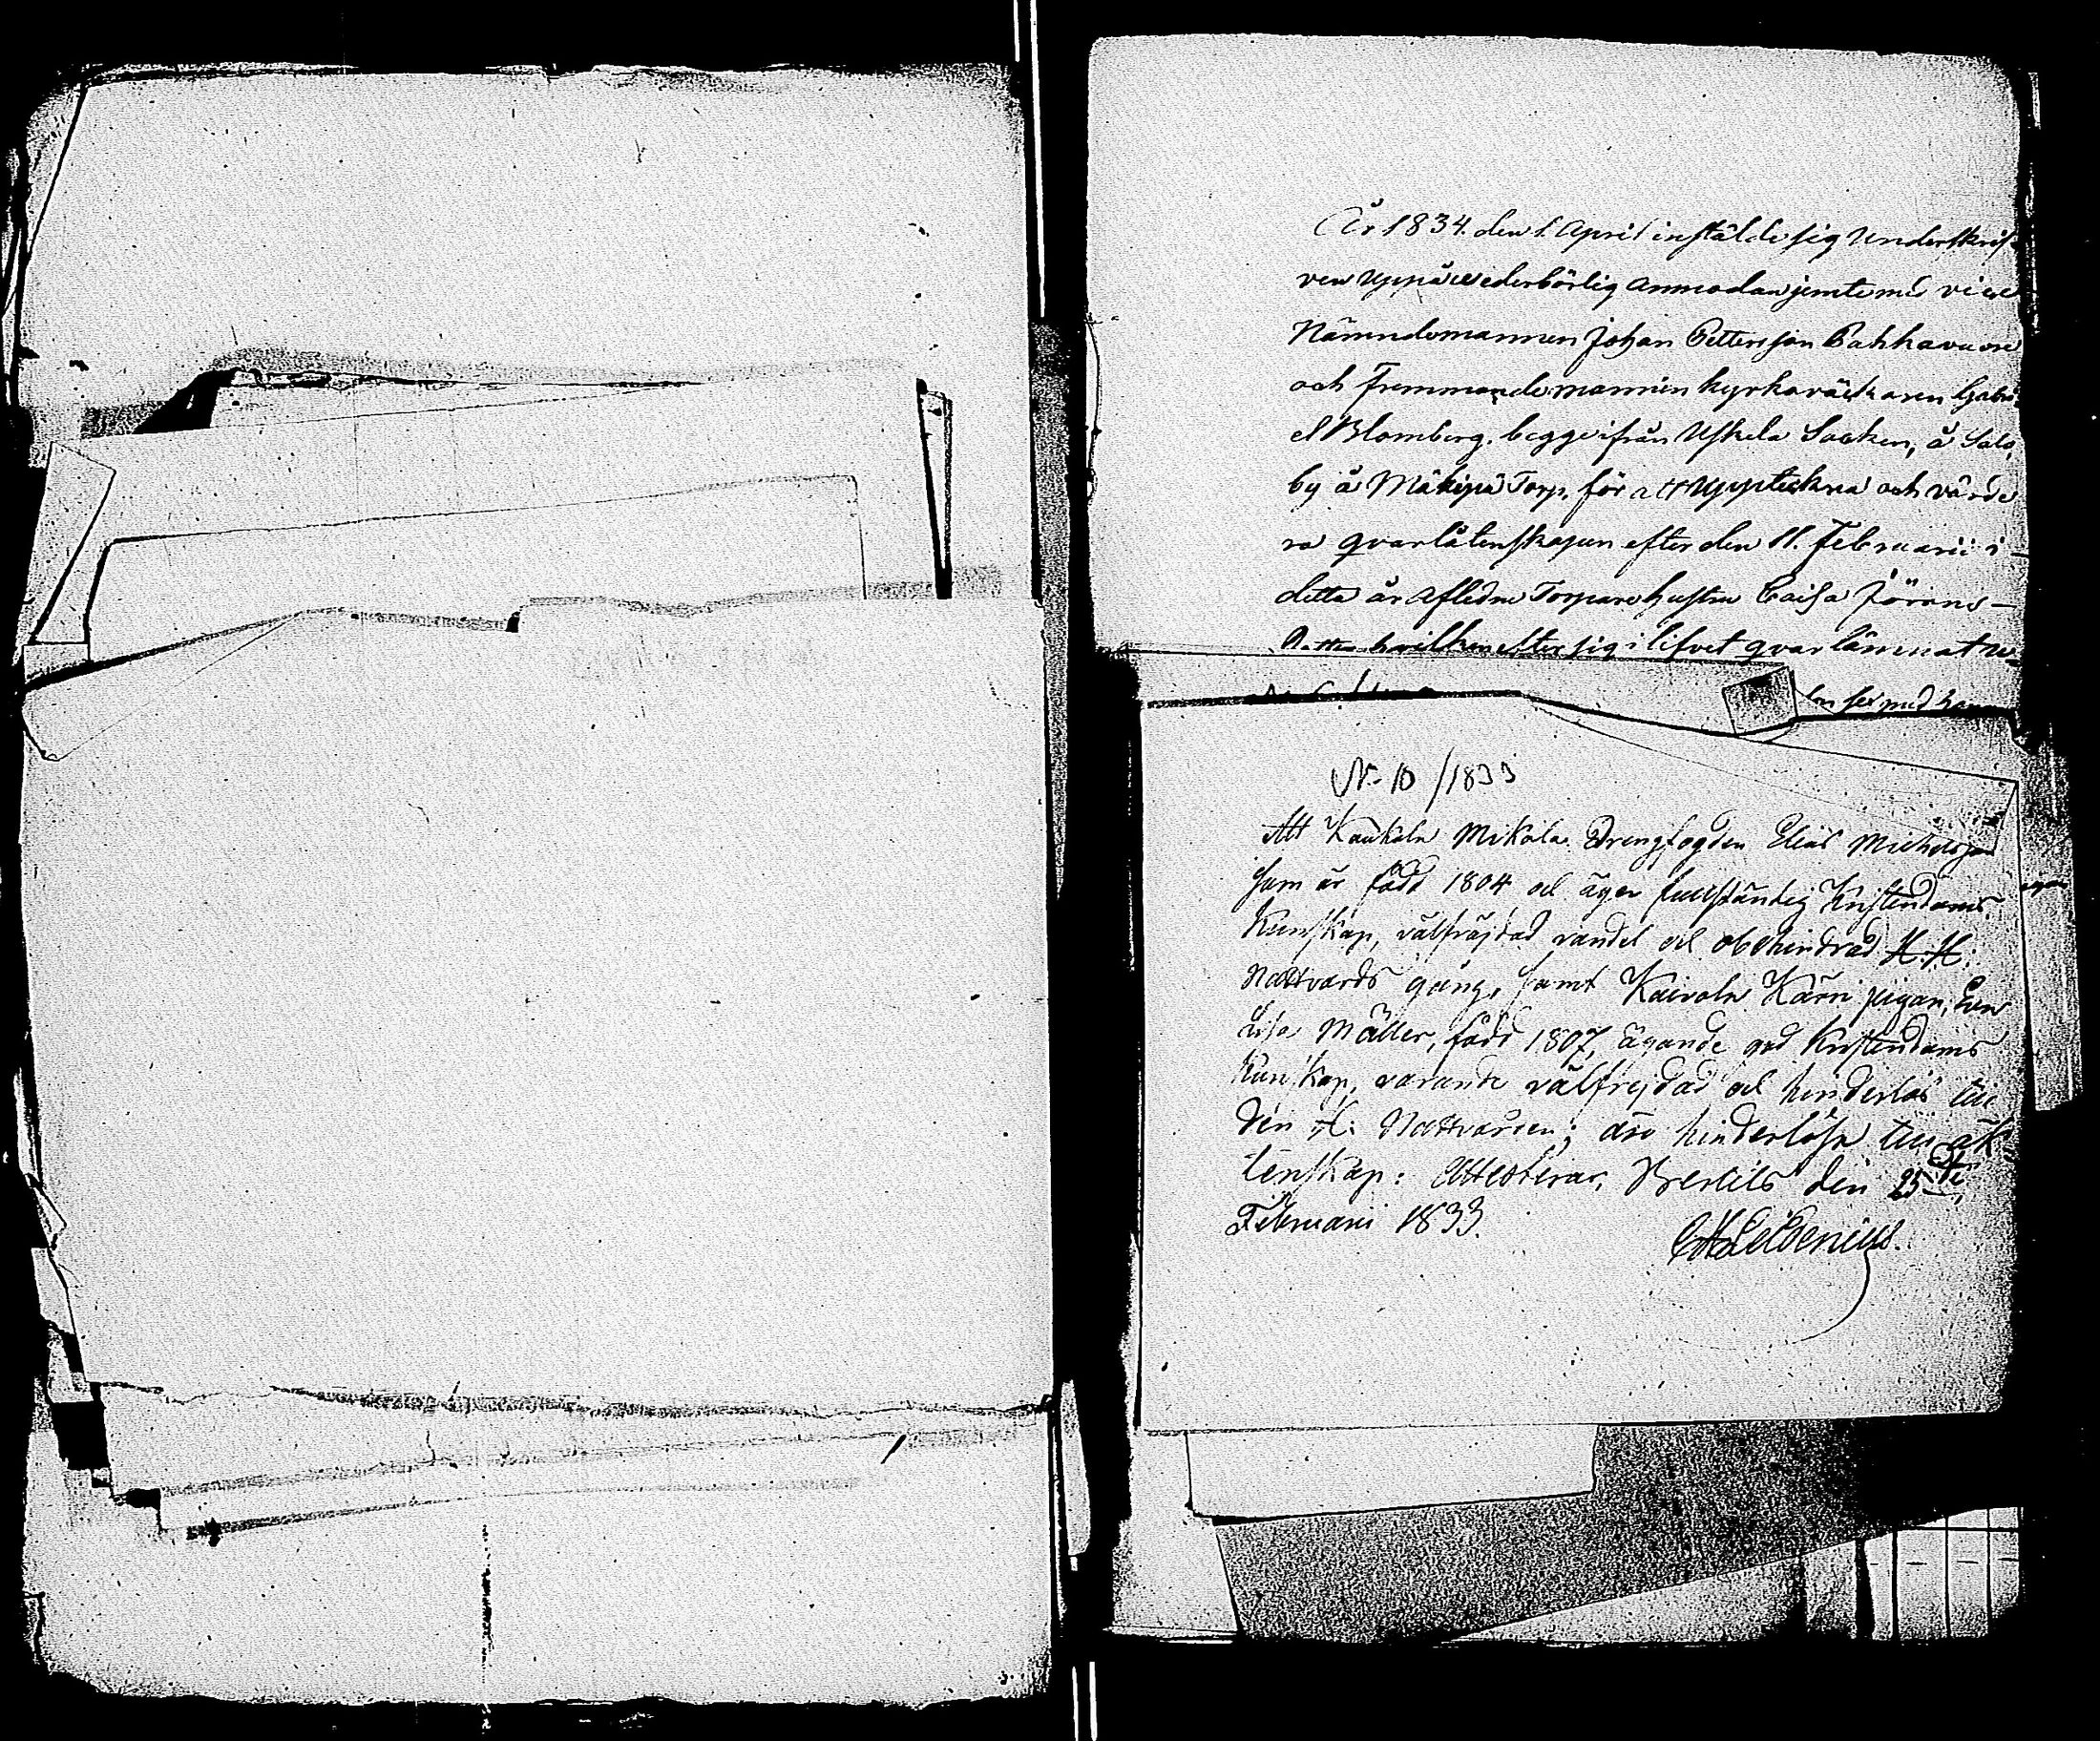 År 1834. den 1. April instälde sig Underskrif-
ven Uppå wederbörlig anmodan jemte med vice
Nämndemannen Johan Pettersson Pahkavuore
och Fremmande mannen kyrkoväcktaren Gabri
el Blomberg, begge ifrån Uskela Socken, å Salo
by å Mäkipä Torp, för att Upptekna och värde
ra qvarlåtenskapen efter den 11. Februarii i
detta år Aflidne Torpare hustru Caisa Jörans-
Dotter hvilken efter sig i lifvet qvarlämnat
sex med
No 10 /1833
Att Kaukola Mikola Drengfogden Elias Michelsson
som är född 1804 och äger fullständig Kristendoms
Kunskap, välfräjdad vandel och obehindrad H. H.
Nattvards gång, samt Kaivola Kärri pigan, Eva
Lisa Mäller, född 1807, ägande god Kristendoms
kunskap, varande välfrejdad och hinderlös till
den H. Nattvarden; äro hinderlösa till äk-
tenskap: Attesterar, Bertils den 25de
Februari 1833.